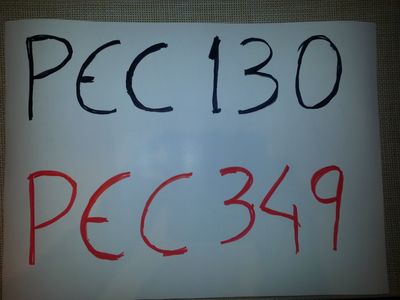 PEC 130
PEC 349